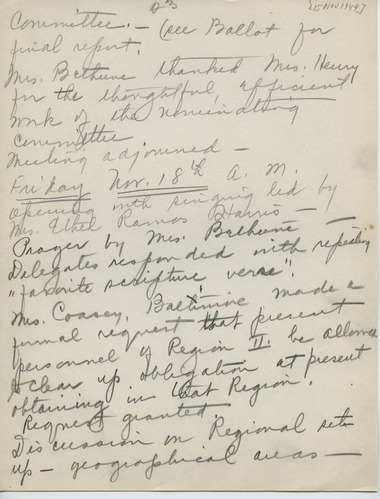 23
[15 Nov 1949?]
Committee. — (see Ballot for
final report.
Mrs. Bethune thanked Mrs. Henry
for the thoughtful, efficient
work of the nominating
committee
Meeting adjourned —
Friday Nov. 18th A.M.
opening with singing led by
Mrs. Ethel Ramos Harris —
Prayer by Mrs. Bethune —
Delegates responded with repeating
"favorite scripture verse".
Mrs. Coasey, Baltimore made a
formal request that present
personnel of Region II. be allowed
to clear up obligation at present
obtaining in that Region.
Request granted.
Discussion on Regional set
up — geographical areas —